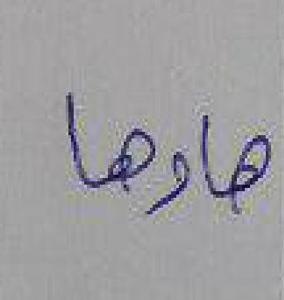 هاوها